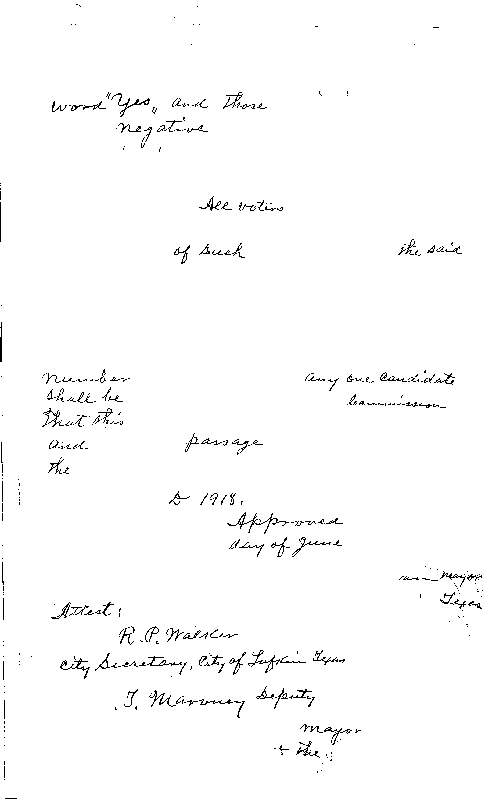 word "Yes", and those
negative
All voting
of such the said
number any one candidate
shall be commission
that this
and passage
the
D 1918.
Approved
day of June
mayor
Texas
Attest:
R. P. Walker
City Secretary, City of Lufkin Texas
Deputy
mayor
the